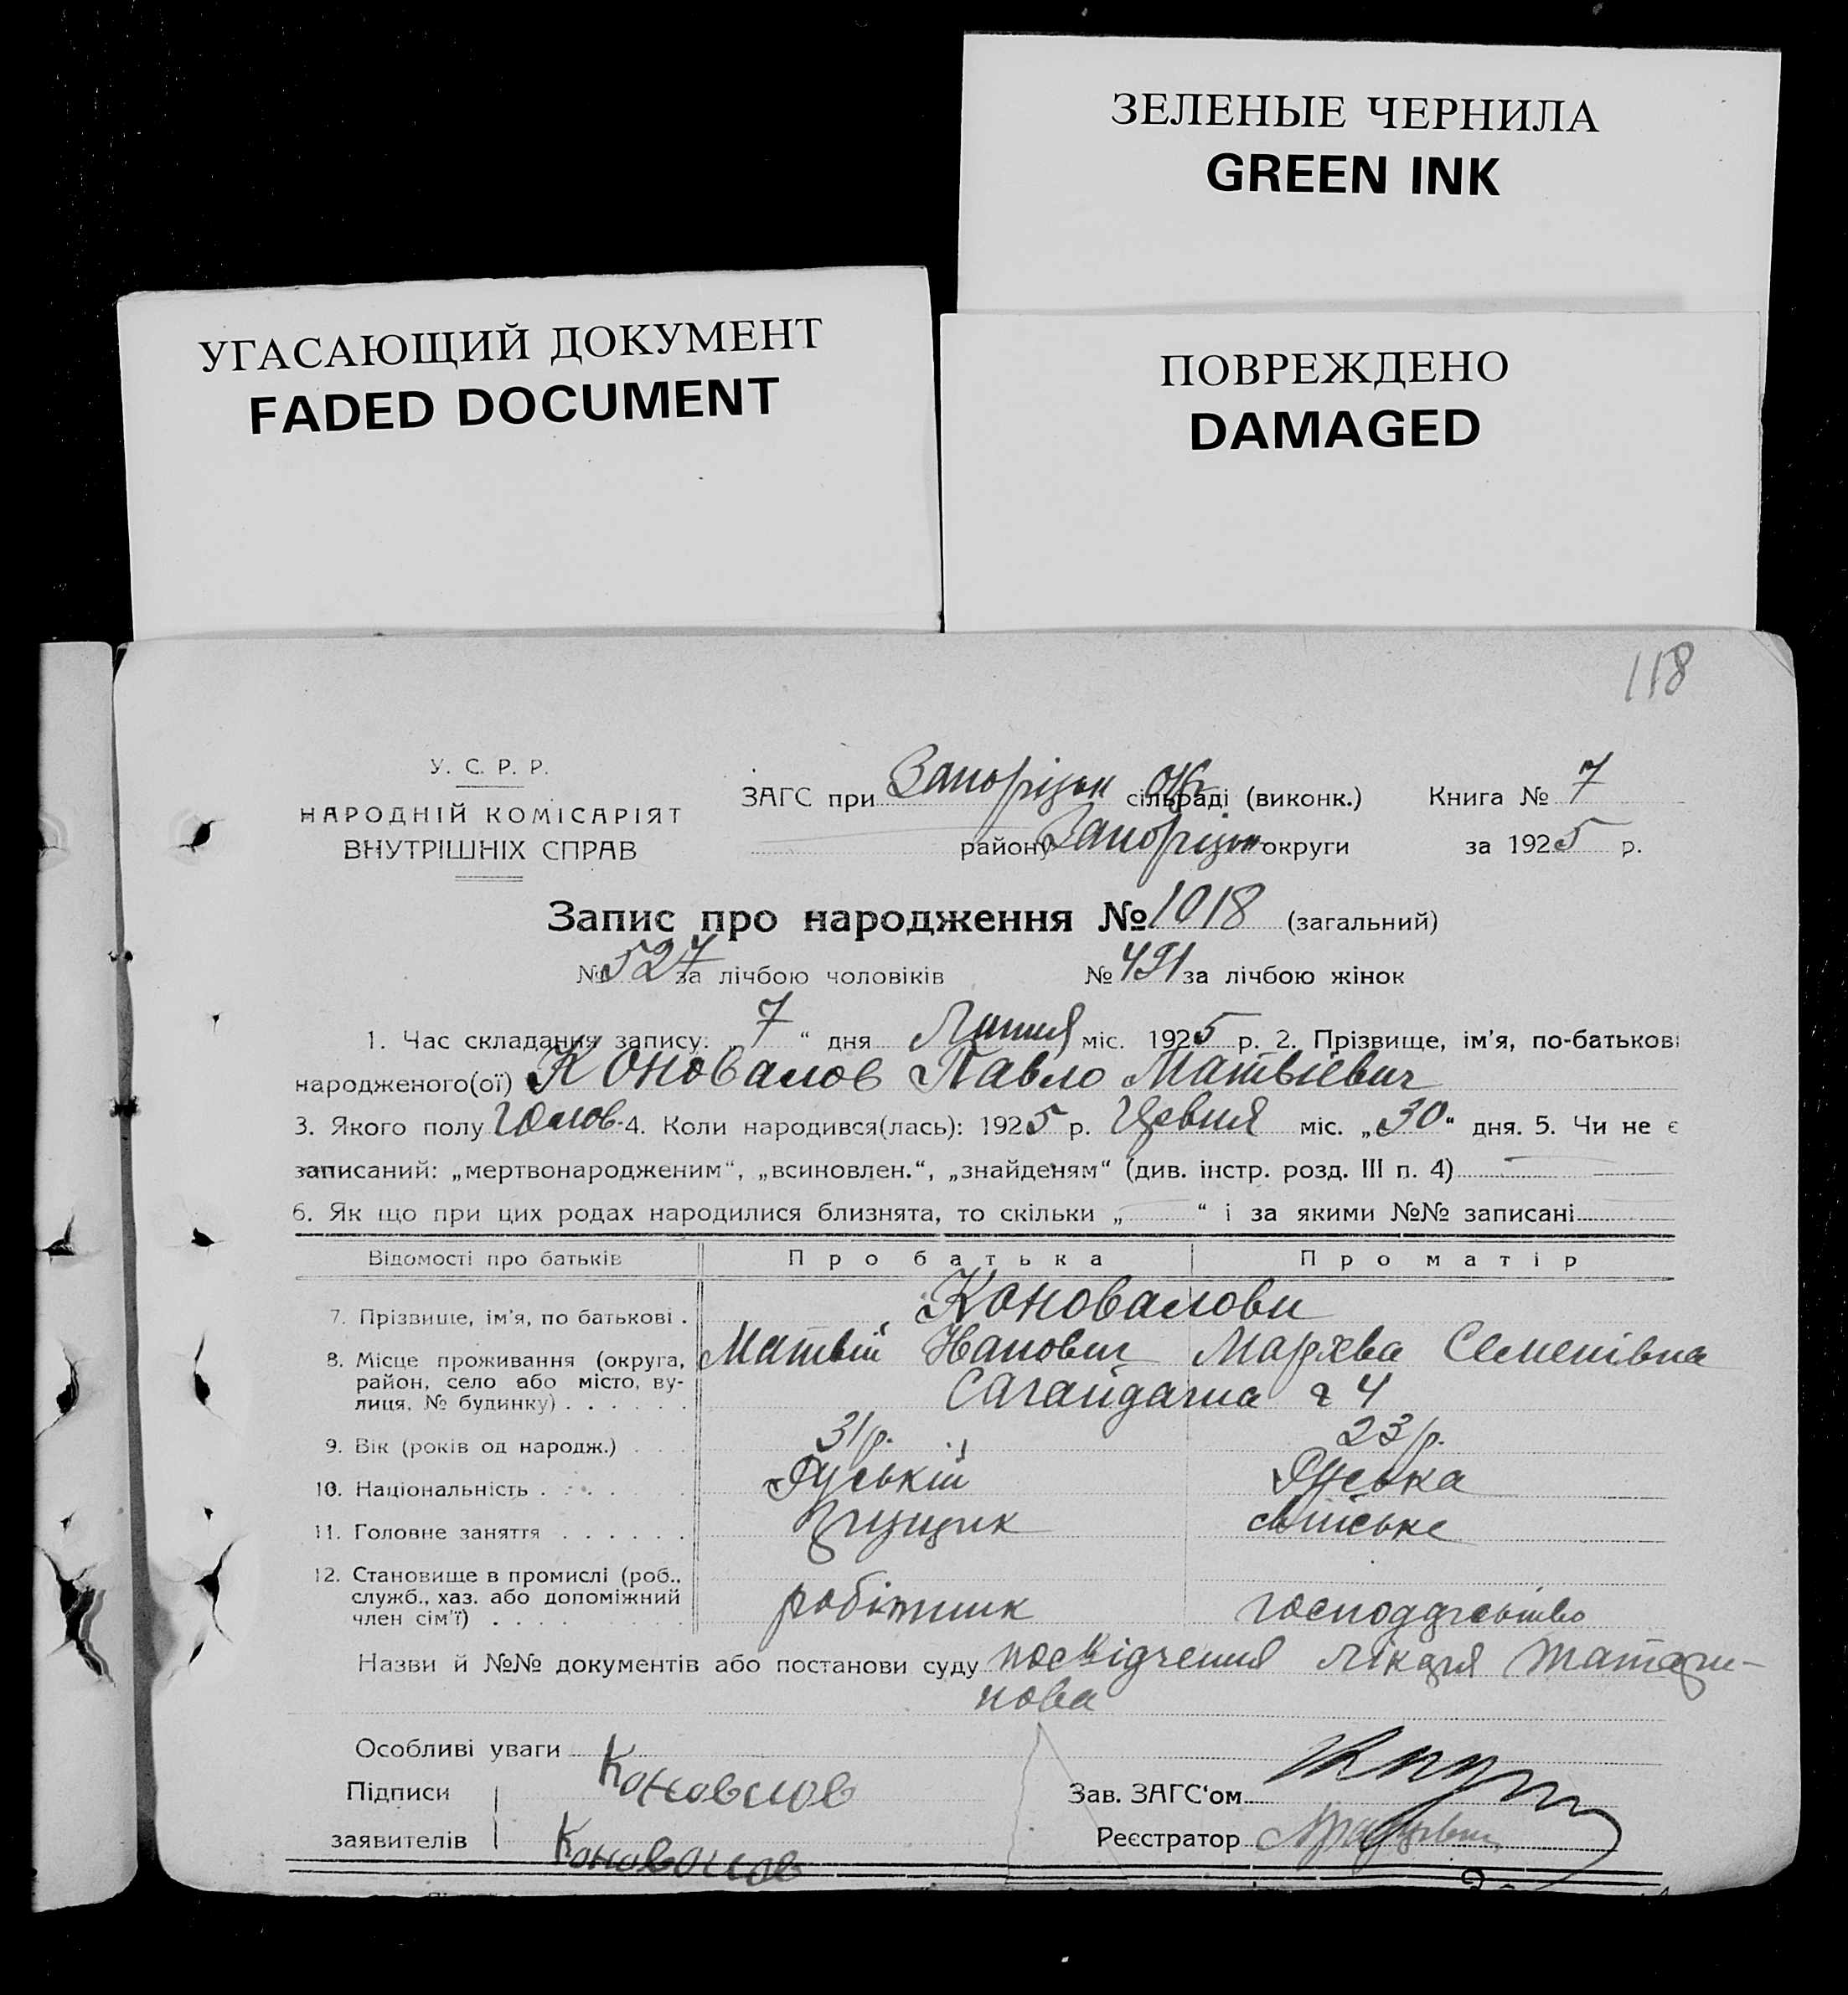 ЗЕЛЕНЫЕ ЧЕРНИЛА
GREEN INK
УГАСАЮЩИЙ ДОКУМЕНТ
FADED DOCUMENT
ПОВРЕЖДЕНО
DAMAGED
118
У. С. Р. Р.
НАРОДНІЙ КОМІСАРІЯТ
ВНУТРІШНІХ СПРАВ
ЗАГС при Запорізьк сільраді (виконк.) Книга № 7
району Запорізьк округи за 1925 р.
Запис про народження № 1018 (загальний)
№ 527 за лічбою чоловіків № 491 за лічбою жінок
1. Час складання запису: „ 7 “ дня Липня міс. 1925 р. 2. Прізвище, ім'я, по-батькові
народженого(ої) Коновалов Павло Матвієвич
3. Якого полу Чолов. 4. Коли народився(лась): 1925 р. Червня міс. „30“ дня. 5. Чи не є
записаний: „мертвонародженим“, „всиновлен.“, „знайденям“ (див. інстр. розд. III п. 4)
6. Як що при цих родах народилися близнята, то скільки „ “ і за якими №№ записані
Відомості про батьків Про батька Про матір
7. Прізвище, ім'я, по батькові . Коновалови
Матвій Іванович Мархва Семенівна
8. Місце проживання (округа,
район, село або місто, ву-
лиця, № будинку) . . . . . . Сагайдачна ч 4
9. Вік (років од народж.) . . . 31 р. 23 р.
10. Національність . . . . . . Руській Руська
11. Головне заняття . . . . . . свійське
12. Становище в промислі (роб.,
служб., хаз. або допоміжний
член сім'ї) . . . . робітник господарство
Назви й №№ документів або постанови суду посвідчення лікаря Татари-
нова
Особливі уваги
Підписи Коновалов
заявителів Коновалов
Зав. ЗАГС'ом
Реєстратор